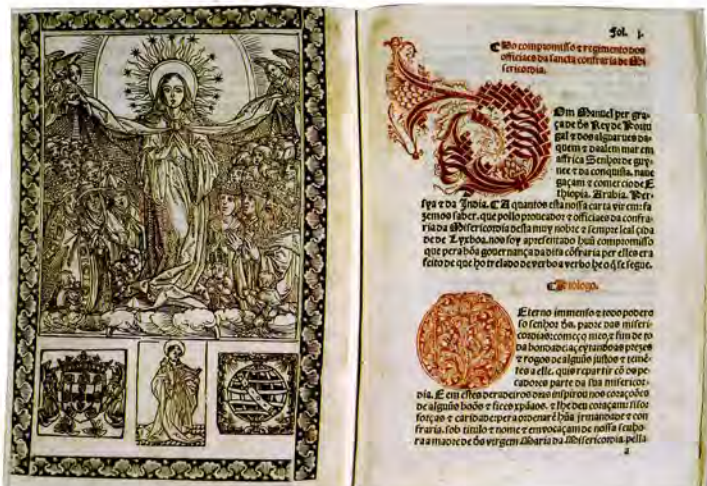 Fol. j.
Do compromisso ⁊ regimento dos
officiaes da sancta confraria de Mi
sericordia.
Dom Manuel per gra
ça de d̃s Rey de Portu
gal ⁊ dos algarues da
quem ⁊ daalem mar em
affrica Senhor de guy-
nee ⁊ da conquista. naue
gaçam ⁊ comercio de E
thiopia. Arabia. Per-
sya ⁊ da India. A quantos esta nossa carta virem: fa
zemos saber. que pollo prouedor ⁊ officiaes da confra-
ria da Misericordia desta muy nobre ⁊ sempre leal çida
de de Lyxboa. nos foy apresentado huũ compromisso
que pera bõa gouernança da dita cõfraria per elles era
feito de que ho trelado de verbo a verbo he o q̃ se segue.
Prologo.
Eterno immenso ⁊ todo podero
so senhor d̃s. padre das miseri-
cordias: começo meo, ⁊ fim de to
da bondade: açeytando as prezes
⁊ rogos de alguũs justos ⁊ temẽ-
tes a elle. quis repartir cõ os pe-
cadores parte da sua misericor-
dia. E em estes derradeiros dias inspirou nos corações
de alguũs boõs ⁊ fiees xp̃aãos. ⁊ lhe deu coraçam: siso:
forças ⁊ caridade: pera ordenarẽ hũa jrmandade ⁊ con
fraria. sob titulo ⁊ nome ⁊ emvocaçam de nossa senho-
ra a madre de d̃s virgem Maria da Misericordia. pella
a